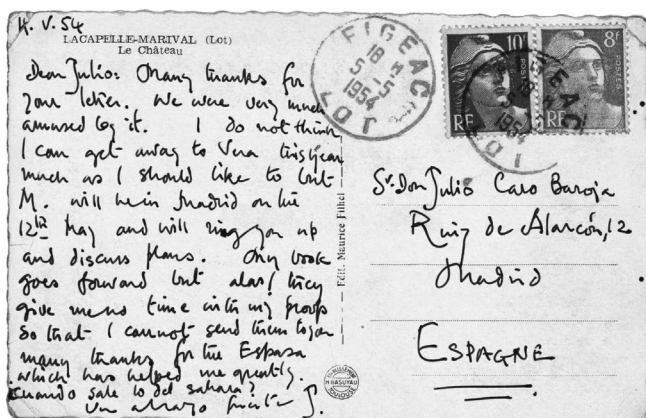 4. V. 54
LACAPELLE-MARIVAL (Lot)
Le Château
Dear Julio: Many thanks for
your letter. We were very much
amused by it. I do not think
I can get away to Vera this year
much as I should like to but
M. will be in Madrid on the
12th May and will ring you up
and discuss plans. My book
goes forward but alas! they
give me no time with my proofs
so that I cannot send them to you
many thanks for the Espasa
which has helped me greatly.
Cuando sale lo del sahara?
Un abrazo
Edit. Maurice Filhol
FIGEAC
18 H
5-5
1954
LOT
10f
POSTES
RF
8f
POSTES
RF
Sr. Don Julio Caro Baroja
Ruiz de Alarcón, 12
Madrid
ESPAGNE
TOULOUSE